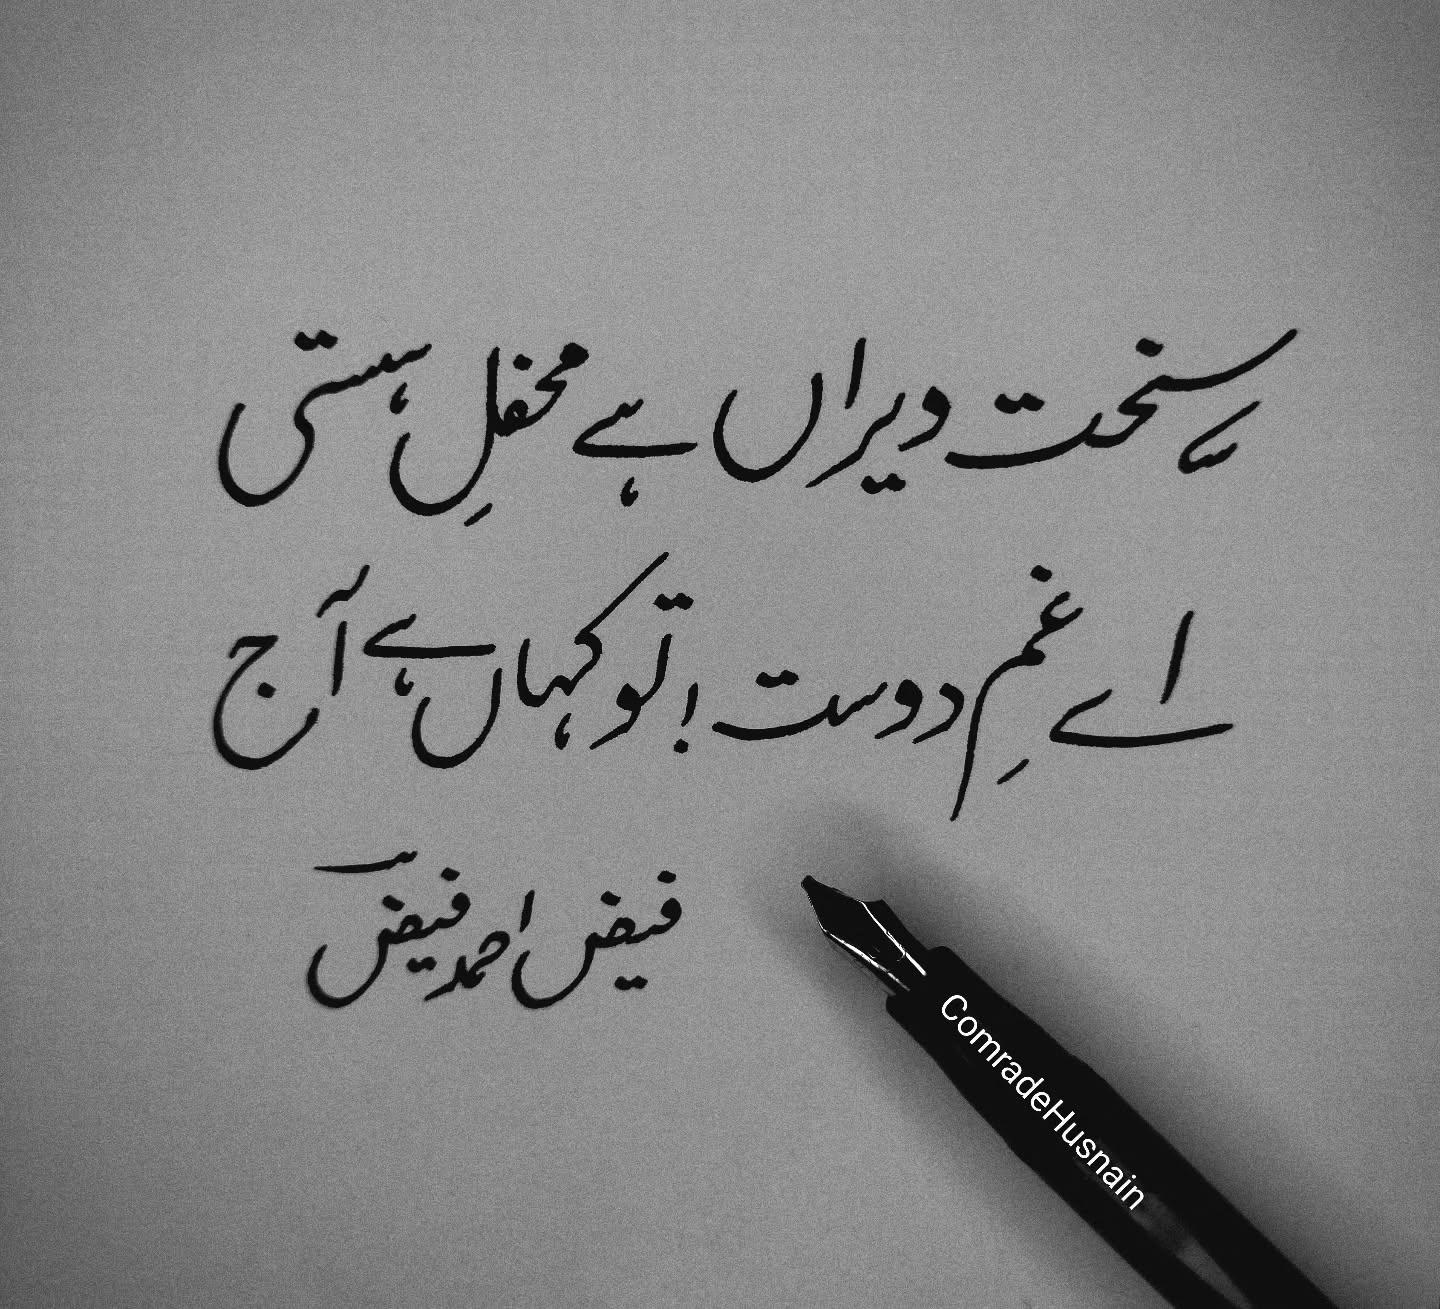 سخت ویراں ہے محفلِ ہستی
اے غمِ دوست ! تو کہاں ہے آج
فیض احمد فیض
ComradeHusnain